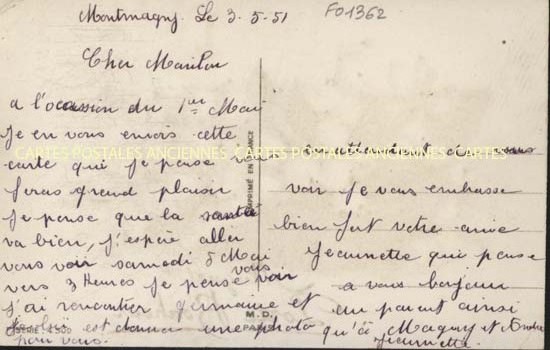 Montmagny Le 3.5.51
FO1362
Cher Marilou
a l'occasion du 1er Mai
Je en vous envois cette
carte qui je pense vous
feras grand plaisir
Je pense que la santé
va bien, j'espère aller
vous voir samedi 5 Mai
vers 3 Heures je pense vous voir
j'ai rencontrer germaine et
est donner une photo
pour vous.
en attendant de vous
voir Je vous embrasse
bien fort votre amie
Jeannette qui pense
a vous bonjour
en parent ainsi
qu'à Magny et
Jeannette.
CARTES POSTALES ANCIENNES CARTES POSTALES ANCIENNES CARTES
IMPRIMÉ EN FRANCE
M. D.
PARIS
SÉRIE